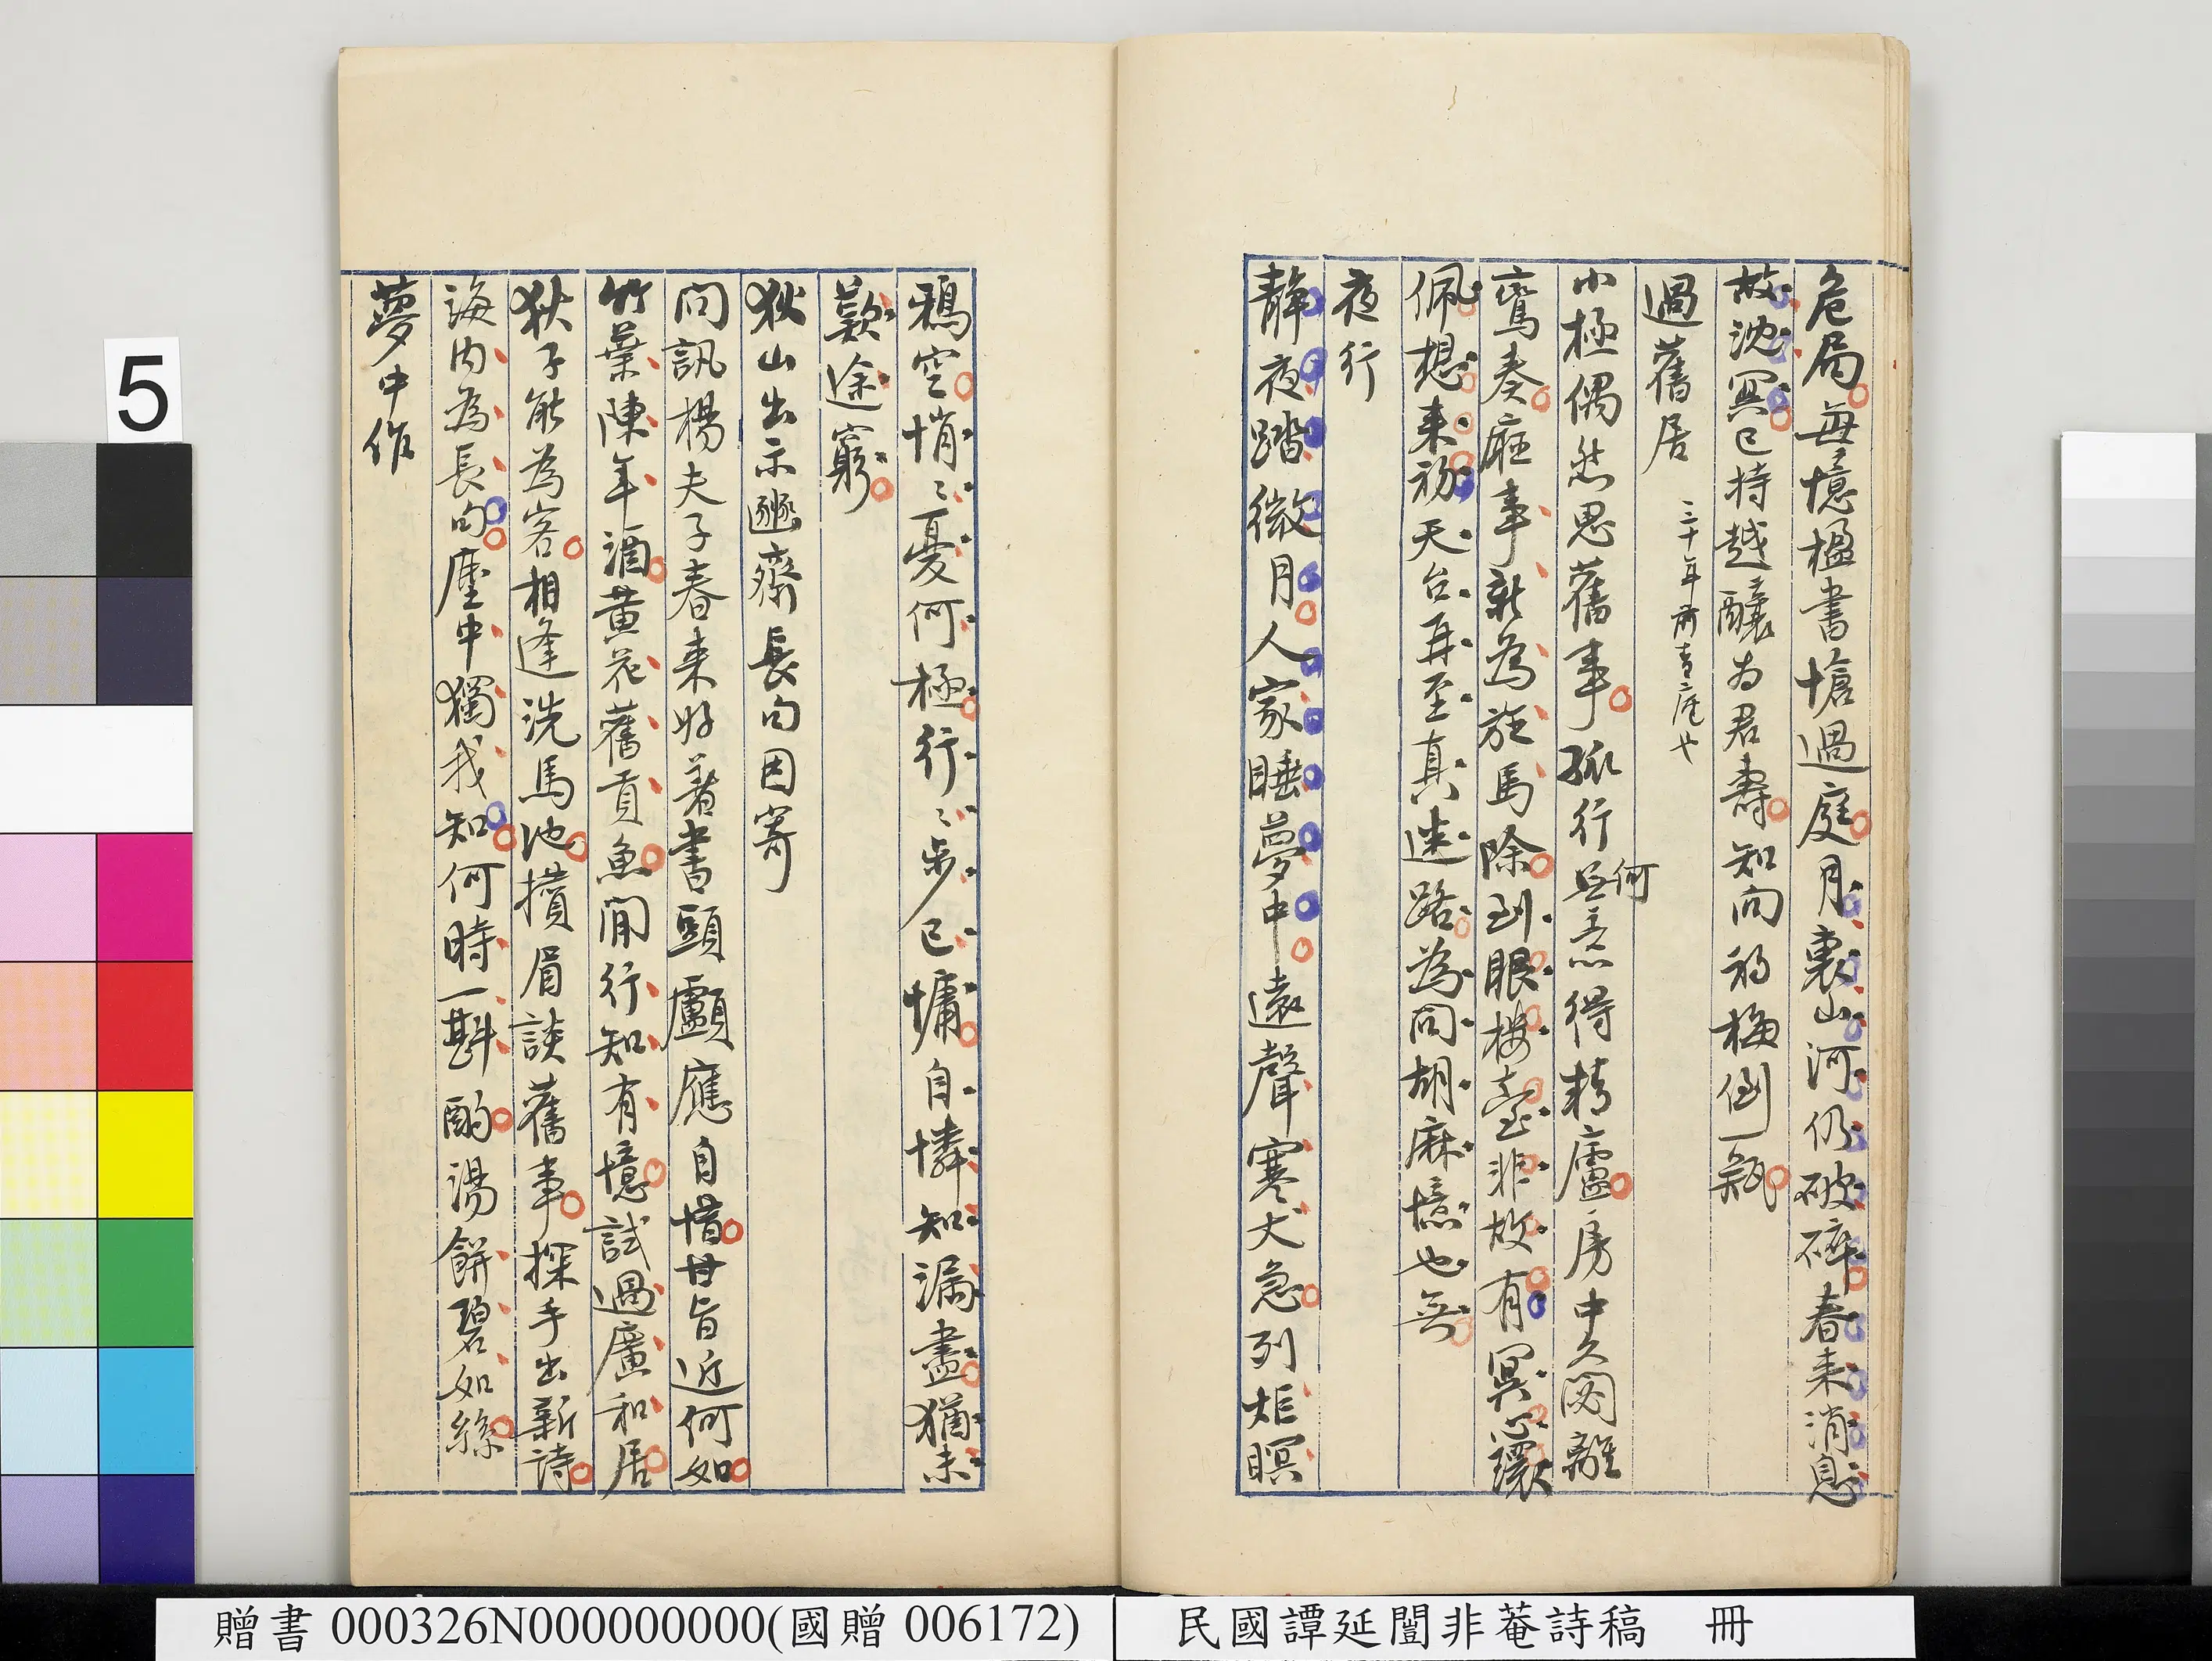 危局每憶楹書愴過庭月裏山河仍破碎春來消息
故沈冥已持越釀為君壽知向初梅倒一瓶
過舊居 二十年前青庵也
小極偶然思舊事孤行無意得精廬房中久閟離
何
鸞奏庭事新為旋馬除到眼樓臺非故有冥心環
佩想來初天台再至真迷路為問胡麻憶也無
夜行
靜夜踏微月人家睡夢中遠聲寒犬急列炬暝
鴉空悄〻憂何極行〻步已慵自憐知漏盡猶未
歎途窮
狄山出示豳齋長句因寄
問訊楊夫子春來好著書頭顱應自惜甘旨近何如
竹葉陳年酒黃花舊貢魚閒行知有憶試過廣和居
狄子能為客相逢洗馬池攢眉談舊事探手出新詩
海內為長句塵中獨我知何時一斟酌湯餅碧如絲
夢中作
5
贈書 000326N000000000(國贈 006172)
民國譚延闓非菴詩稿 冊